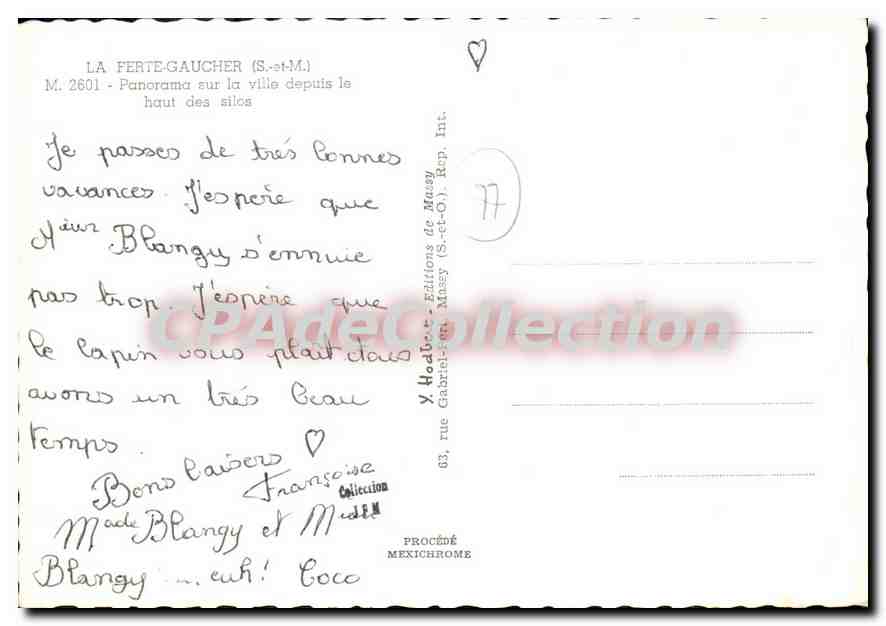 LA FERTE-GAUCHER (S.-et-M.)
M. 2601 - Panorama sur la ville depuis le
haut des silos
Je passes de trés bonnes
vacances. J'espère que
Mieur Blangy s'ennuie
pas trop. J'espère que
le lapin vous plaît
avons un trés beau
temps.
Bons baisers ♡
Françoise
Made Blangy et
Blangy ... euh! Coco
Collection
J.F.M
PROCÉDÉ
MEXICHROME
Y. Hodbert - Editions de Massy
63, rue Gabriel-Peri, Massy (S.-et-O.). Rep. Int.
♡
77
CPAdeCollection